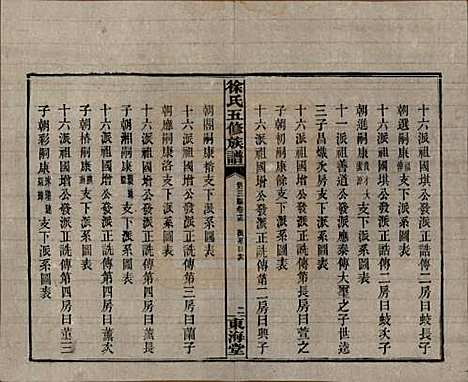 十六派祖國琪公發派正誥傳一房曰蛟長子
朝選嗣康
支下派系圖表
十六派祖國琪公發派正誥傳一房曰蛟次子
朝進嗣康
支下派系圖表
十一派祖善道公發派應泰傳大聖之子世遠
三子昌熾永房支下派系圖表
十六派祖國增公發派正詵傳第一房曰萱之
子朝初嗣康
支下派系圖表
十六派祖國增公發派正詵傳第二房曰興子
徐氏五修族譜
二
東海堂
朝關嗣康
支下派系圖表
十六派祖國增公發派正詵傳第三房曰蘭子
朝應嗣康洛支下派系圖表
十六派祖國增公發派正詵傳第四房曰薰長
子朝湘嗣康
支下派系圖表
十六派祖國增公發派正詵傳第四房曰薰次
朝椿嗣康
支下派系圖表
十六派祖國增公發派正詵傳第四房曰薰三
子朝彩嗣康
支下派系圖表